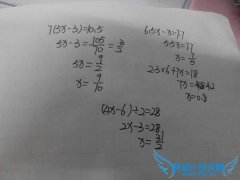 7(5x-3)=10.5
5x-3=105/70=3/2
5x=9/2
x=9/10
6.5x-x=37
5.5x=37
2.3×6+7x=18
x=0.8
(4x-6)÷2=28
2x-3=28
x=31/2